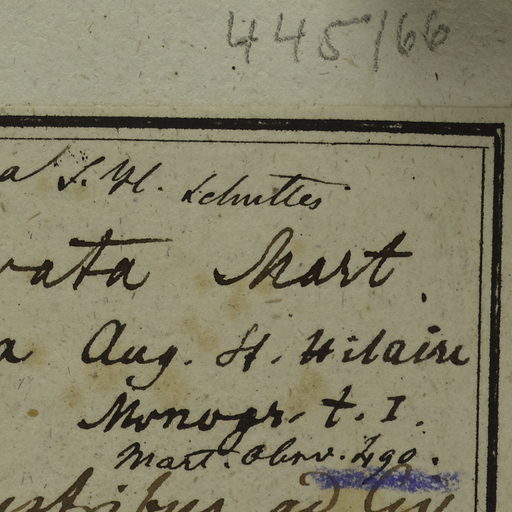 445/66
a J. H. Schultes
vata Mart.
a Aug. St. Hilaire
Monogr. t. I.
Mart. Obsrv. 290.
ustribus ad